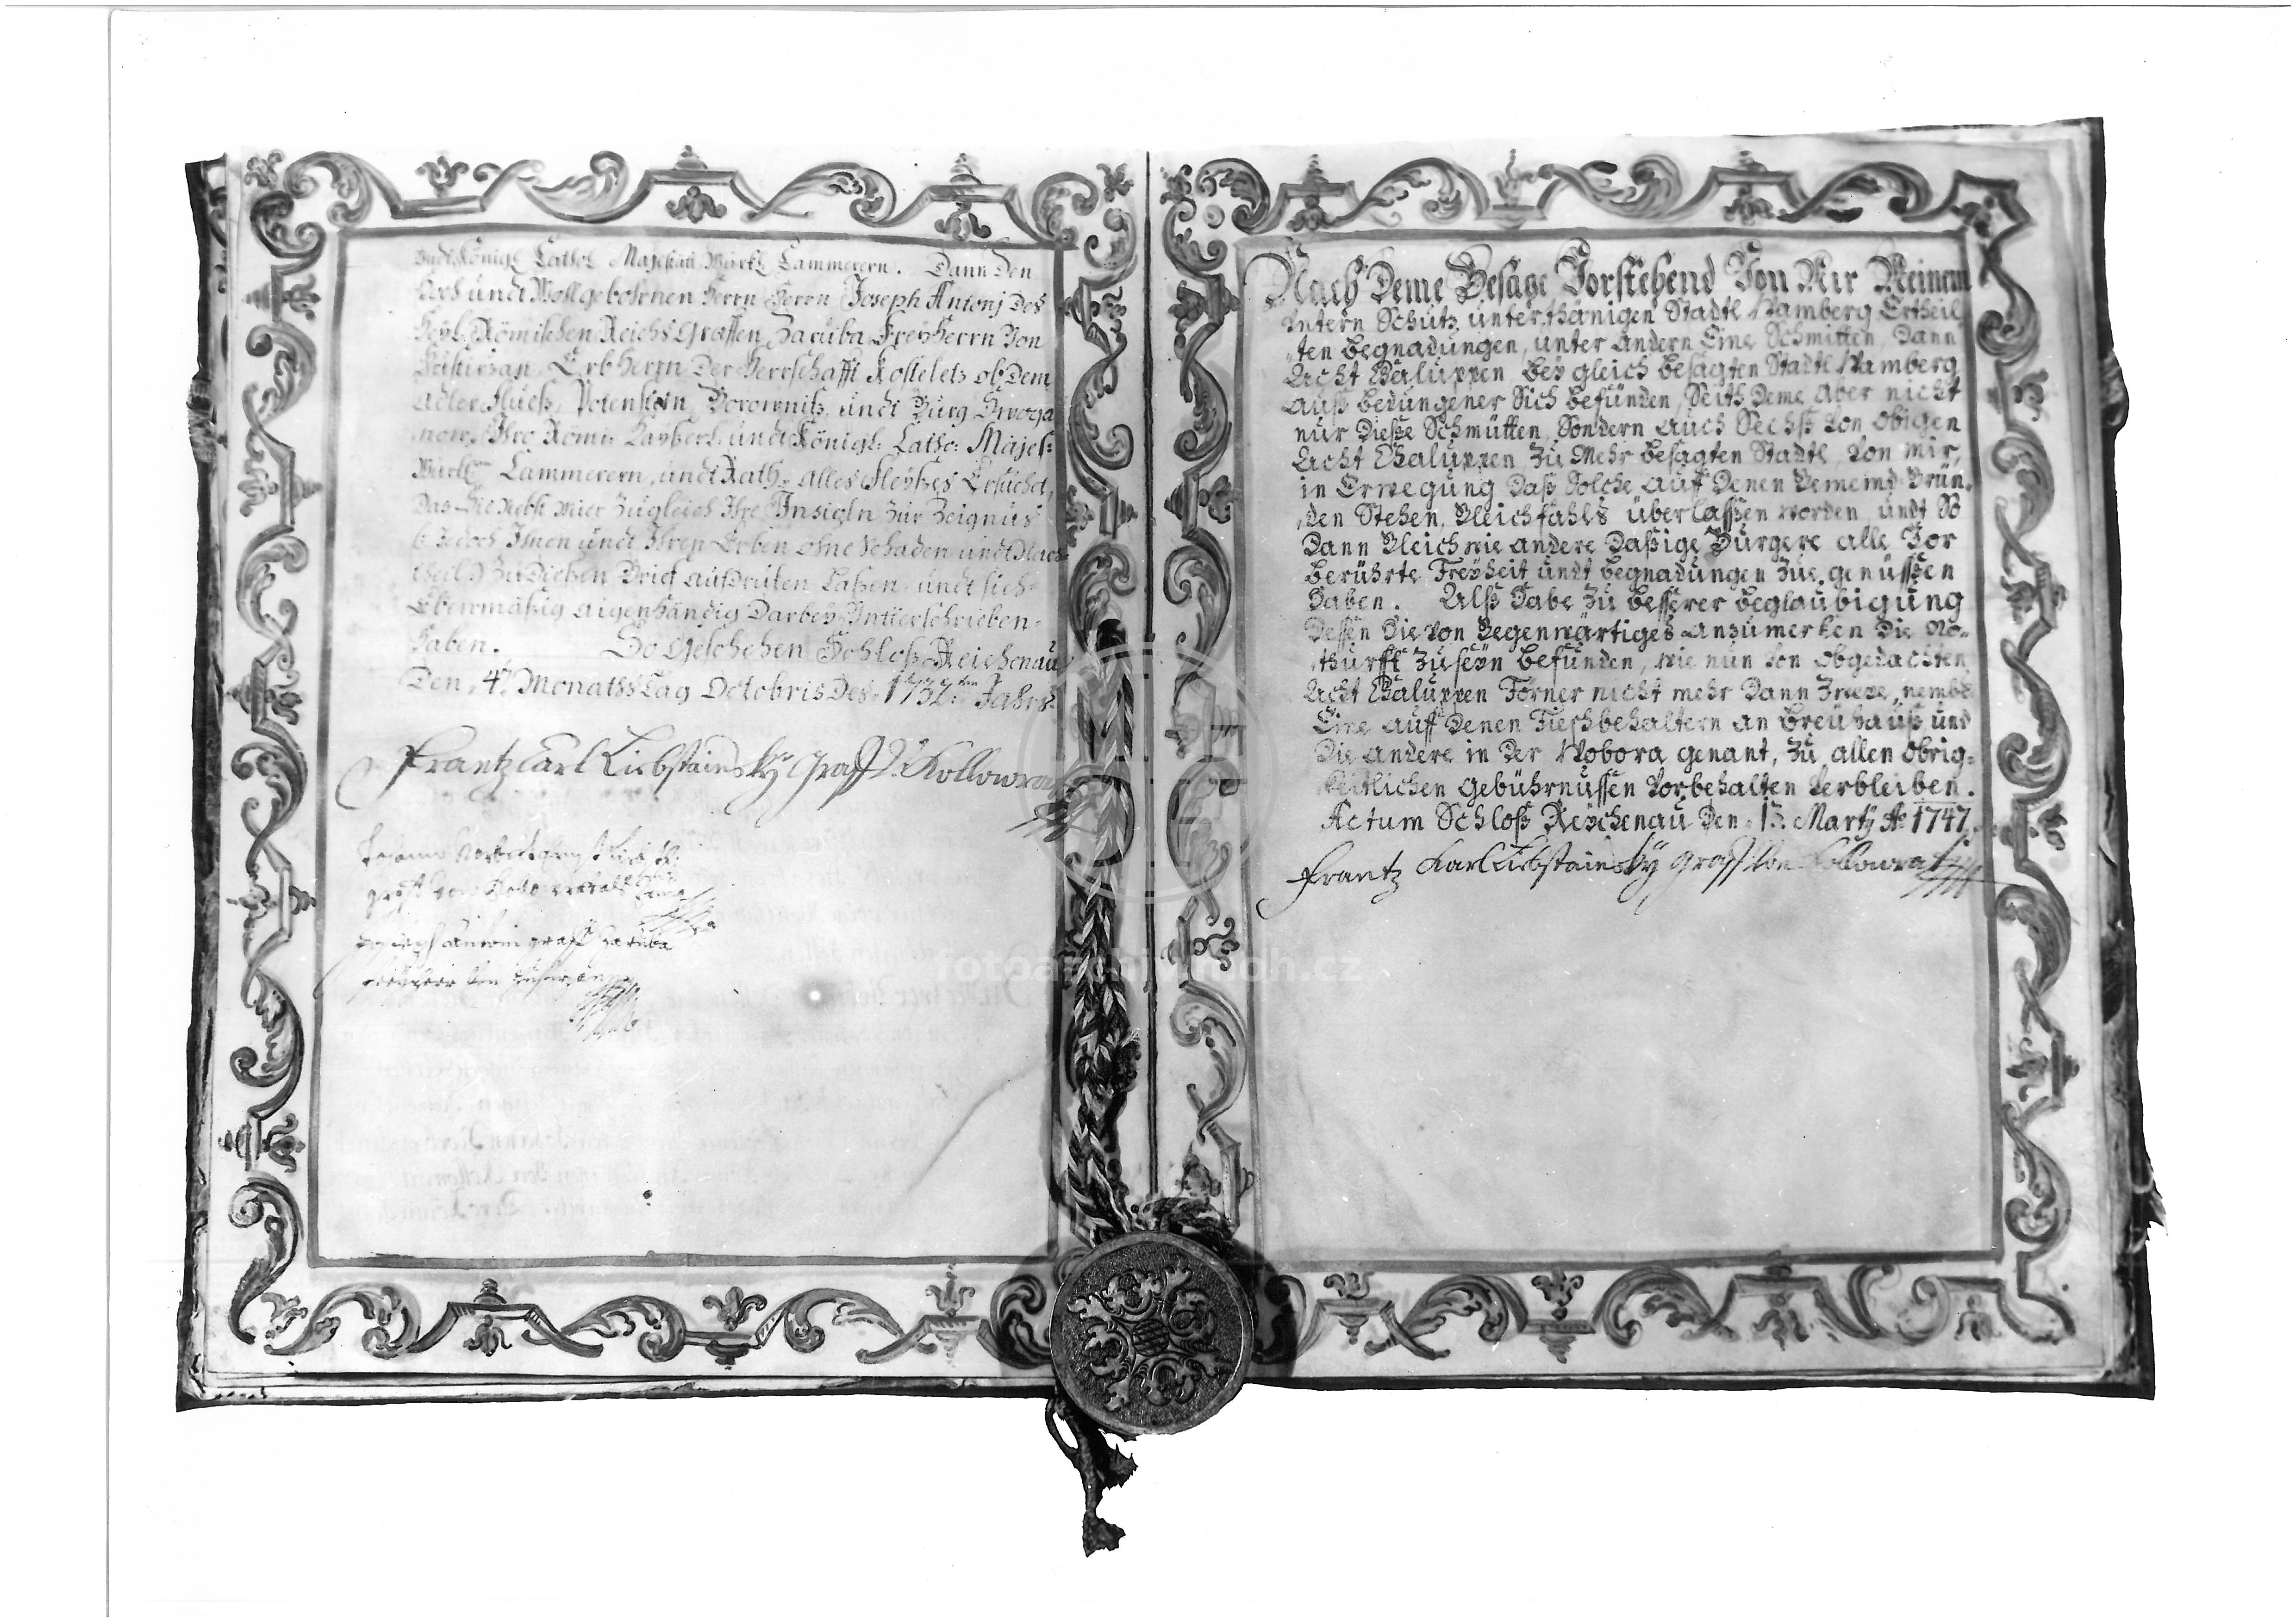 undt Königl Cathol Majestätt Würkl Cammerern. Dann den
Hoch undt Wohlgebohrnen Herrn Herrn Joseph Antonj des
Heyl: Römischen Reichs Graffen Zaruba Freyherrn Von
Erbherrn der Herrschafft Kosteletz ob dem
Adler Flueß, Potenstein, Borownitz, undt Burg
Ihro Röm: Kayserl: undt Königl: Catho: Majes:
Würkl: Cammerern, undt Rath, alles Fleyßes Ersuchet,
Das Sie Nebst Mier Zugleich Ihre Insigln Zur Zeignus
Jedoch Ihnen undt Ihren Erben ohne Schaden undt Nach-
theil) Zu dießen Brief aufdruken Laßen, undt sich-
Ebenmäßig aigenhändig Darbey Untterschrieben-
Haben. So Geschehen Schloß Reichenau
Den 4t Monaths Tag Octobris Des 1732ten Jahrs.
Frantz Carl Liebstainsky Graff V: Kollowrat
Joseph Antoni graff Zaruba
Nach Deme Besage Vorstehend Von Mir Meinem
Untern Schutz unterthänigen Stadtl Wamberg Ertheil
ten Begnadungen, unter andern Eine Schmitten, Dann
Acht Chaluppen Bey gleich besagten Stadtl Wamberg
Auß bedungener Sich befunden, Seith deme Aber nicht
nur Dieße Schmütten, Sondern Auch Sechß Von Obigen
Acht Chaluppen Zu Mehr besagten Stadtl, Von Mir,
in Erwegung Daß Solche Auff Denen Gemeind Grün-
den Stehen, Gleichfahls überlaßen worden, undt So
Dann Gleich wie andere Daßige Bürgere alle Vor
berührte Freyheit undt Begnadungen Zue genüssen
Haben. Alß Habe Zu Besserer Beglaubigung
Dessen Die Von Gegenwärtiges Anzumerken Die No-
thurfft Zu seyn Befunden, wie nun Von Obgedachten
Acht Chaluppen Ferner nicht mehr Dann Zweye, nembl
Eine Auff Denen Fischbehaltern an Breühauß und
Die Andere in Der Wobora genant, Zu allen Obrig-
keitlichen Gebührnüssen Vorbehalten Verbleiben.
Actum Schloß Reichenau Den 13. Martÿ Ao 1747
Frantz Karl Liebstainsky Graff Von Kollowrat
fotoarchiv.moh.cz